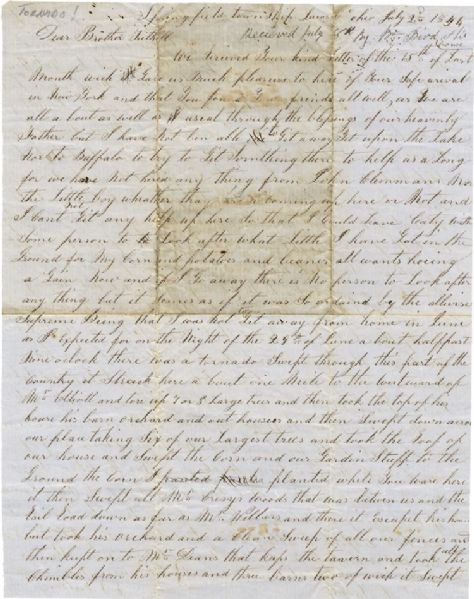 TORNADO!
Springfield township Ohio July 2nd 1846
Dear Brother Received July By Mr
We recived Your kind letter of the 15th of Last
Month wich Gave us Much pleasure to here of Your Safe arival
in New York and that You found Your friends all well, as We are
all a bout as well as useal through the blesings of our heavenly
Father but I have Not ben able to Git away Yet upon the Lake
Nor to Buffalo to try to Git Something there to help us a Long
for we have Not hered any thing from John Clemmans Nor
the Little boy whather thay are coming out here or Not and
I Cant Git any help up here so that I Could have Carty with
Some person to Look after what Little I have Got in the
Ground for My Corn and potatoes and beanes all wants hoeing
a Gain Now and if I Go away there is No person to Look after
any thing but it Semes as if it was So ordaind by the allwise
Supreme Being that I was Not Get away from home in June
as I Expected for on the Night of the 29th of June a bout half past
Nine oclock there was a tornado Swept through this part of the
Country it Struck here a bout one Mile to the westward of
Mr Elliott and tore up 7 or 8 Large trees and then took the top of his
house his barn orchard and out houses and then Swept down across
our place taking Six of our Largest trees and took the roof of
our house and Swept the Corn and our Garden Stuff to the
Ground the Corn I planted while You ware here
it then Swept all Mr woods that was between us and the
Rail Road down as far as Mr and there it escapt his house
but took his orchard and a Clean Sweep of all our fences and
then kept on to Mr Deans that keps the tavern and took the
Chimblies from his houses and three barns two of wich it Swept